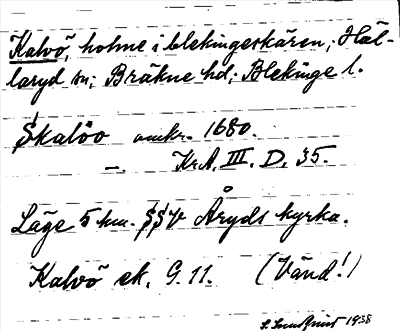 Kalvö, holme i blekingeskären; Häl-
laryd sn; Bräkne hd; Blekinge l.
Skalöö omkr. 1680.
—. KrA. III. D. 35.
Läge 5 km. SSV Åryds kyrka.
Kalvö ek. G. 11. (Vänd!)
S. Lundquist 1938